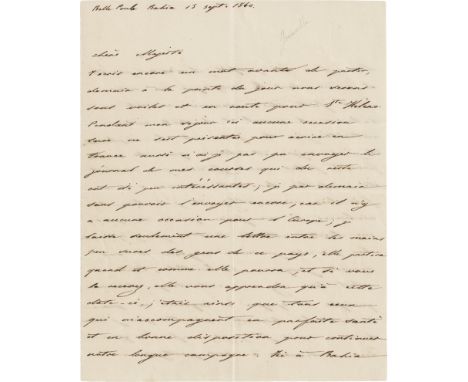 Belle Poule Bahia 15 sept. 1840.
chère Majesté
J'écris encore un mot avant de partir,
demain à la pointe du jour nous serons
sous voiles et en route pour Ste Hélène
Pendant mon séjour ici aucune occasion
sure ne s'est présentée pour écrire en
france aussi n'ai je pas pu envoyer le
journal de mes courses qui du reste
ont été peu intéressantes; je pars demain
sans pouvoir l'envoyer encore, car il n'y
a aucune occasion pour l'Europe; je
laisse seulement une lettre entre les mains
des gens de ce pays, elle partira
quand et comme elle pourra, et si vous
la recevez, elle vous apprendra qu'à cette
date-ci, j'étais ainsi que tous ceux
qui m'accompagnent en parfaite santé
et en bonne disposition pour continuer
notre longue campagne. à Bahia